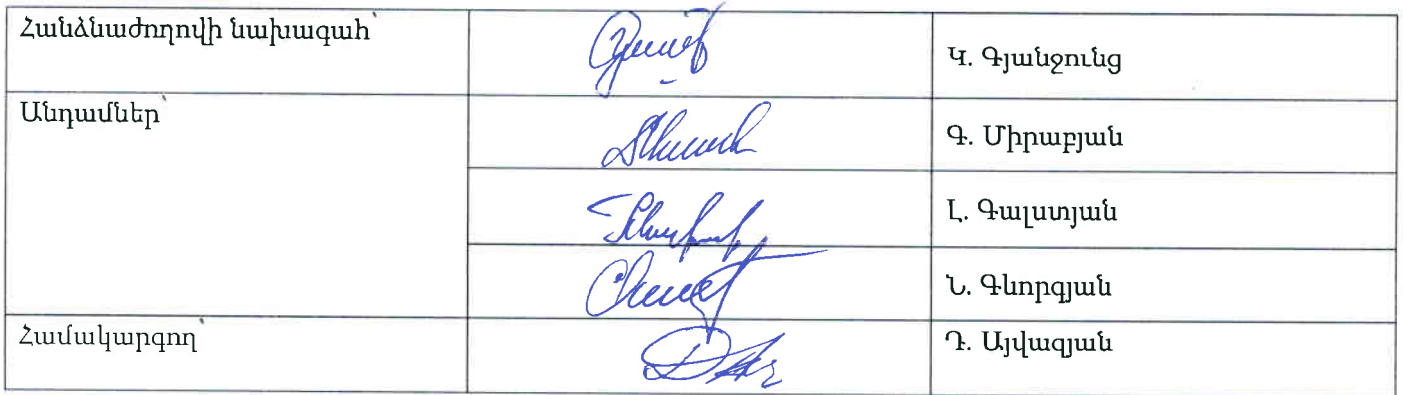 Հանձնաժողովի նախագահ՝
Կ. Գյանջունց
Անդամներ՝
Գ. Միրաբյան
Լ. Գալստյան
Ն. Գևորգյան
Համակարգող՝
Դ. Այվազյան